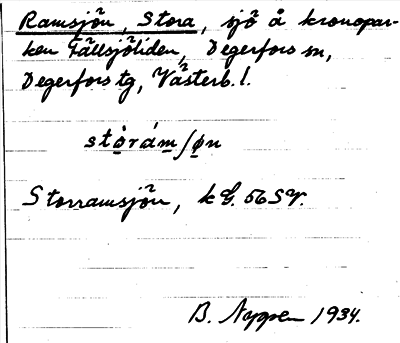 Ramsjön, Stora, sjö å kronopar-
ken Fällsjöliden, Degerfors sn,
Degerfors tg, Västerb. l.
stǫ̀rám/ǫn
Storramsjön, k G. 56 SV.
B. 1934.